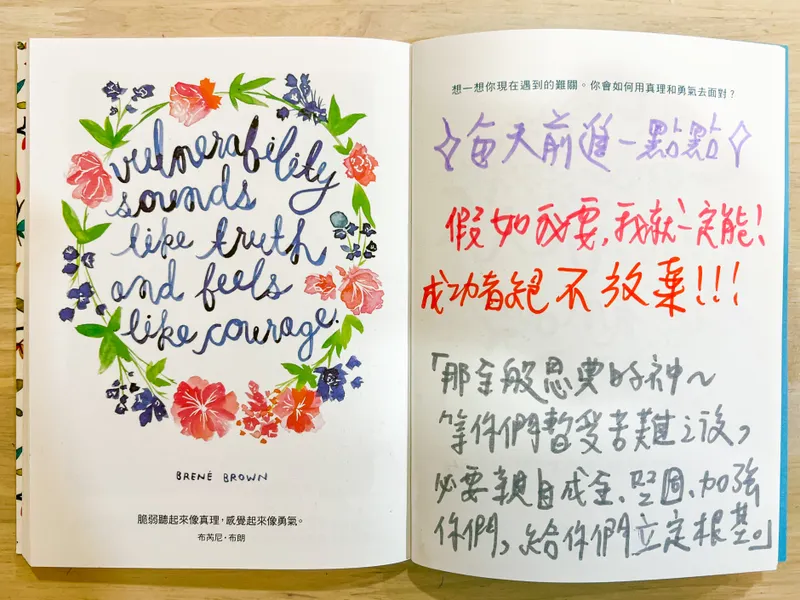 vulnerability
sounds
like truth
and feels
like courage.
BRENÉ BROWN
脆弱聽起來像真理，感覺起來像勇氣。
布芮尼・布朗
想一想你現在遇到的難關。你會如何用真理和勇氣去面對？
每天前進一點點
假如我要，我就一定能！
成功者絕不放棄！！！
「那全般恩典的神～
等你們暫受苦難之後，
必要親自成全、堅固、加強
你們，給你們立定根基。」